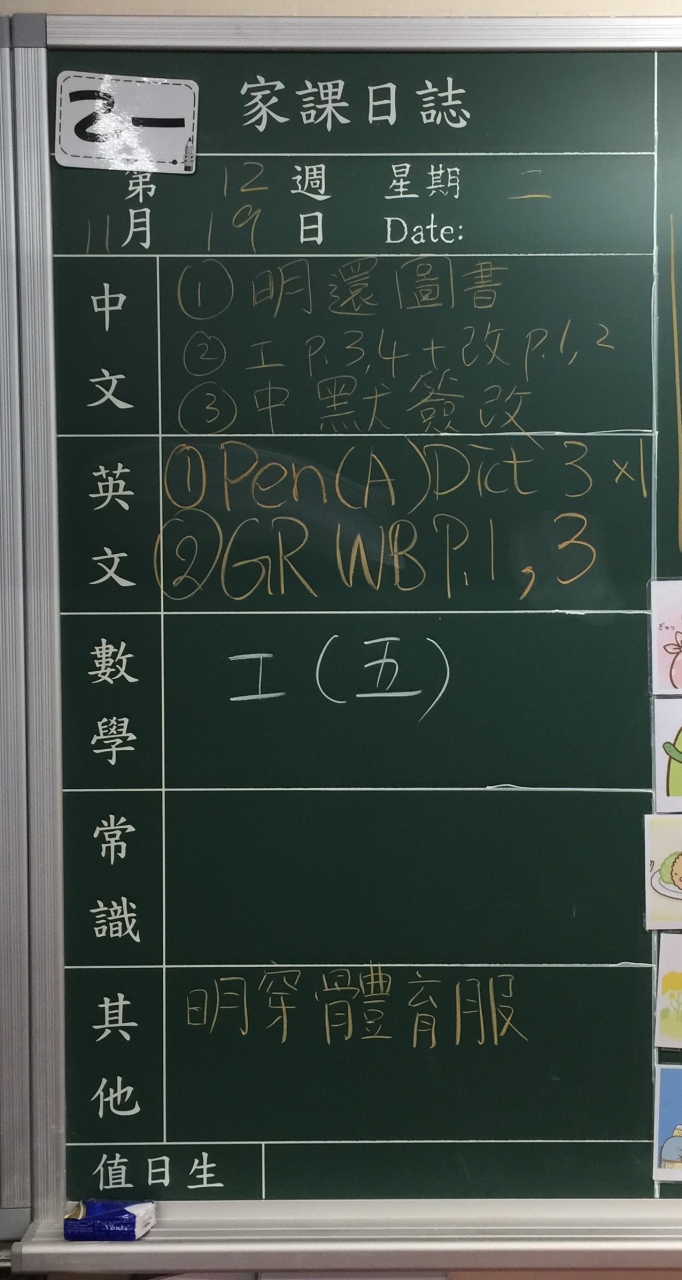 家課日誌
第 12 週 星期 二
11 月 19 日 Date:
中文
① 明還圖書
② 工 P.3,4 + 改 P.1,2
③ 中默簽改
英文
① Pen(A) Dict 3 x1
② GR WB P.1, 3
數學
工 (五)
常識
其他
明穿體育服
值日生